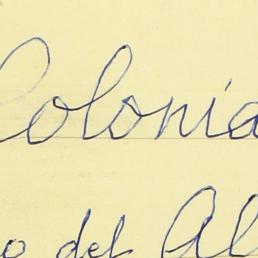 Colonia
o del Al